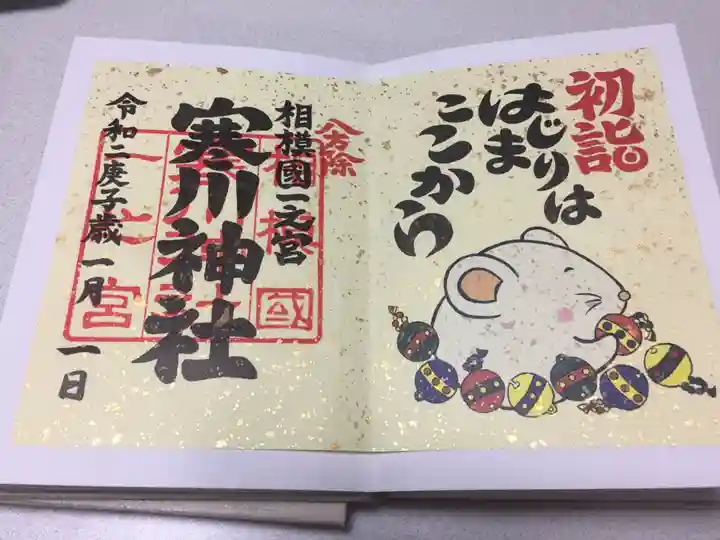 初詣
はじまりは
ここから
八方除
相模國一之宮
寒川神社
令和二庚子歳一月一日
相模國
一之宮